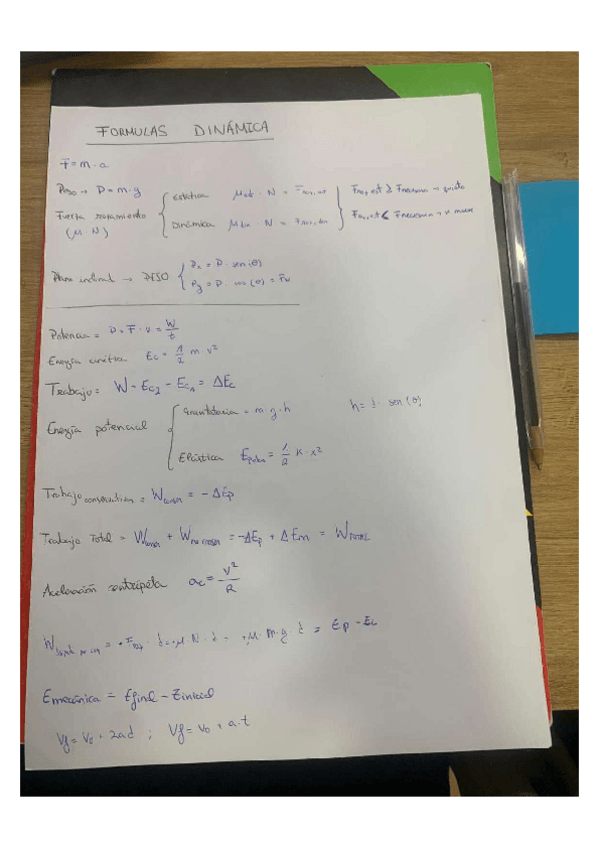 FORMULAS DINÁMICA
F = m · a
Peso → P = m · g
Fuerza rozamiento (μ · N)
Estática μest · N = Froz, est
Dinámica μdin · N = Froz, din
Froz est ≥ Fnecesaria → quieto
Froz est < Fnecesaria → se mueve
Plano inclinad → PESO
Px = P · sen(θ)
Py = P · cos(θ) = FN
Potencia = P = F · v = W/t
Energía cinética Ec = 1/2 m · v²
Trabajo = W = Ec2 - Ec1 = ΔEc
Energía potencial
Gravitatoria = m · g · h
h = d · sen(θ)
Elástica = 1/2 K · x²
Trabajo conservativo = Wconser = - ΔEp
Trabajo Total = Wconser + Wno conser = -ΔEp + ΔEm = WTOTAL
Aceleración centrípeta ac = v²/R
= · d = · μ · N · d = · μ · m · g · d = Ep - Ec
Emecánica = Efinal - Einicial
Vf = V0 + 2ad ; Vf = V0 + a · t